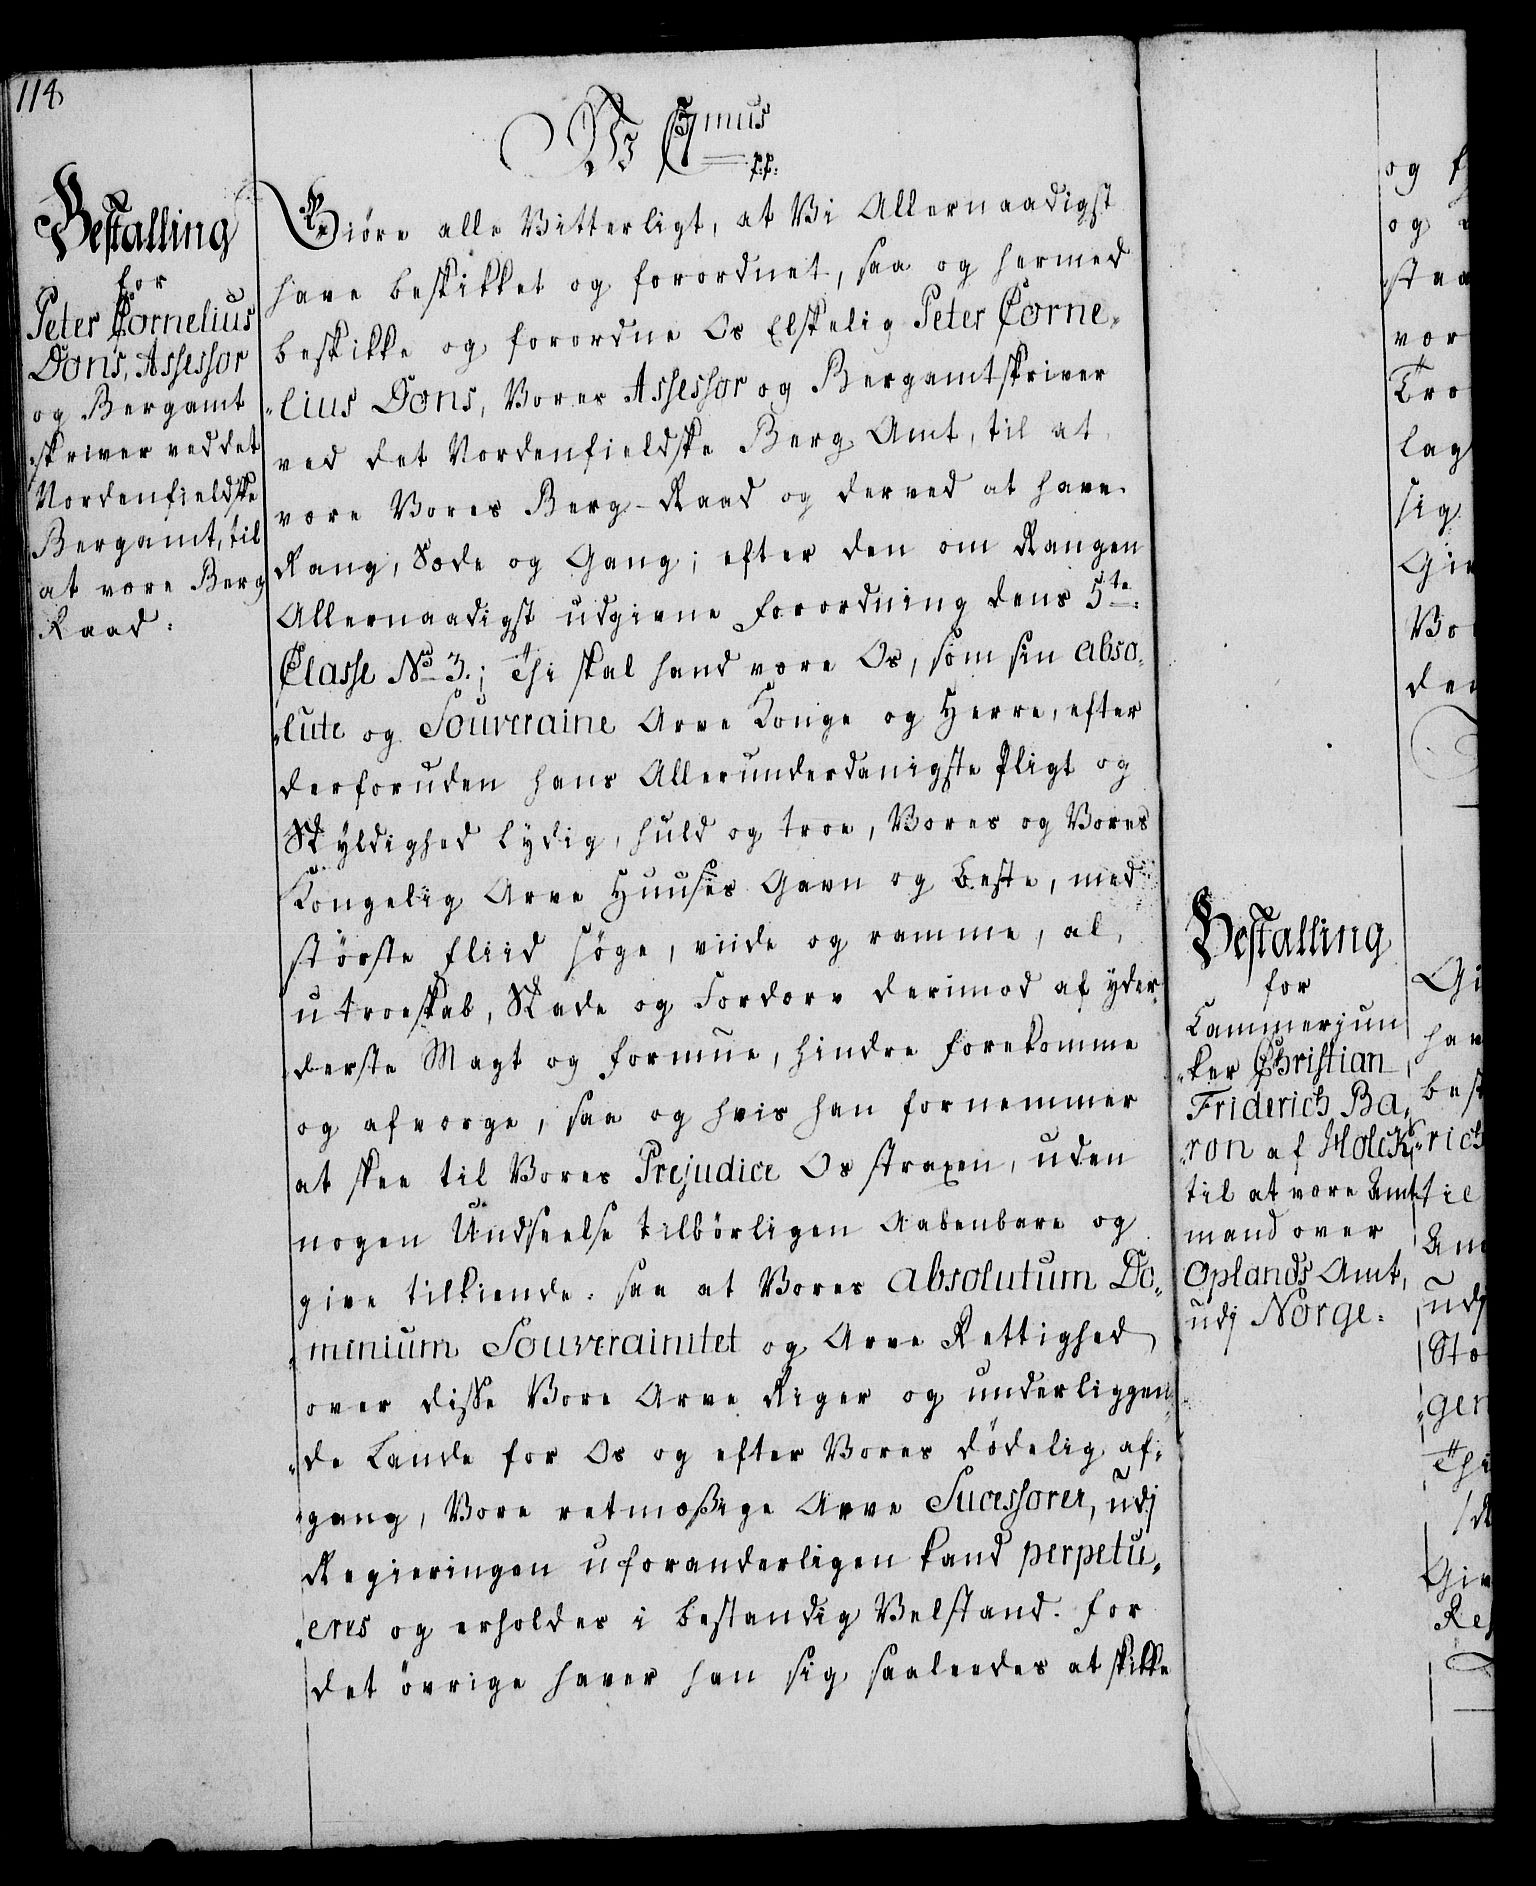 114
Bestalling
for
Peter Cornelius
Dons, Assessor
og Bergamt
skriver ved det
Nordenfieldske
Bergamt, til
at være Berg
Raad.
Vi C 7mus
p.p.
Giöre alle Vitterligt, at Vi Allernaadigst
have beskikket og forordnet, saa og hermed
beskikke og forordne Os Elskelig Peter Corne„
„lius Dons, Vores Assessor og Bergamtskriver
ved det Nordenfieldske Berg Amt, til at
være Vores Berg-Raad og derved at have
Rang, Sæde og Gang; efter den om Rangen
Allernaadigst udgivne Forordning dens 5te
Classe No 3.; Thi skal hand være Os, som sin abso„
„lute og Souveraine Arve Konge og Herre, efter
derforuden hans Allerunderdanigste Pligt og
Skyldighed lÿdig, huld og troe, Vores og Vores
Kongelig Arve Huuses Gavn og Beste, med
störste Fliid söge, viide og ramme, al
utroeskab, Skade og Fordærv derimod af ÿder„
derste Magt og formue, hindre forekomme
og afværge, saa og hvis han fornemmer
at skee til Vores Prejudice Os straxen, uden
nogen Undseelse tilbörligen Aabenbare og
give tilkiende. saa at Vores absolutum Do„
„minium Souverainitet og Arve Rettighed
over disse Vore Arve Riger og underliggen„
„de Lande for Os og efter Vores dödelig af„
„gang, Vore retmæßige Arve Sucessorer, udj
Regieringen uforanderligen kand perpetu„
„eres og erholdes i bestandig Velstand. for
det övrige haver han sig saaledes at skikke
Bestalling
for
Cammerjun
„ker Christian
Friderich Ba„
„ron af Holck,
til at være Amt„
mand over
Oplands Amt,
udj Norge.
og
og
staa
vor
Tro
lag
sig
Giv
Vo
den
Gi
hav
besk
„rich
til
Am
udj
Sto
„gen
Thi
Giv
Re